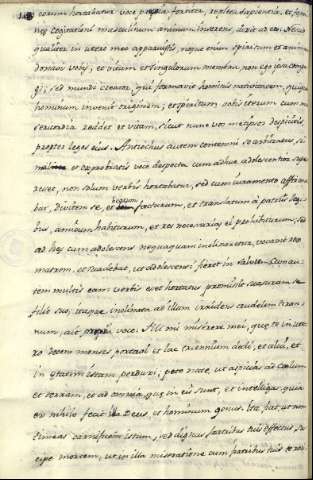 eorum hortabatur voce patria fortiter, repleta sapientia, et femi
neę cogitationi masculinum animum inserens, dixit ad eos: Nescio
qualiter in utero meo apparuistis, neque enim spiritum et animam
donavi vobis, et vitam et singulorum membra non ego ipsa compe
gi, sed mundi creator, qui formavit hominis nativitatem, quique
hominum invenit originem, et spiritum vobis iterum cum mi
sericordia reddet et vitam, sicut nunc vos metipsos despicitis
propter leges eius. Antiochus autem contemni se arbitratus, si
et exprobrantis voce despecta cum adhuc adolescentior supe
resset, non solum verbis hortabatur, sed cum iuramento affirma
bat, divitem se, et beatum facturum, et translatum a patriis legi
bus, amicum habiturum, et res necessarias ei prebiturum; sed
ad hęc cum adolescens nequaquam inclinaretur, vocavit rex
matrem, et suadebat, ut adolescenti fieret in salutem. Cum au
tem multis eam verbis esset hortatus promisit suasuram se
filio suo, itaque inclinata ad illum irridens crudelem tiran
num, ait patria voce. Fili mi miserere mei, quę te in ute
ro decem menses portavi et lac triennium dedi, et alui, et
in ętatem istam perduxi, peto nate, ut aspicias ad cœlum
et terram, et ad omnia quę in eis sunt, et intelligas, quia
ex nihilo fecit illa Deus, et hominum genus. Ita fiet, ut non
timeas carnificem istum, sed dignus fratribus tuis effectus su
scipe mortem, ut in illa miseratione cum fratribus tuis te reci